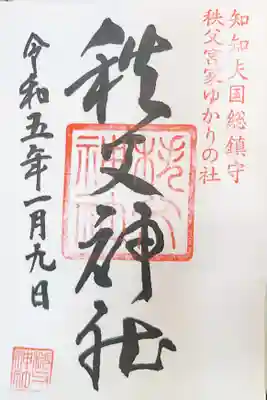 知知夫国総鎮守
秩父宮家ゆかりの社
秩父神社
令和五年一月九日
秩父神社